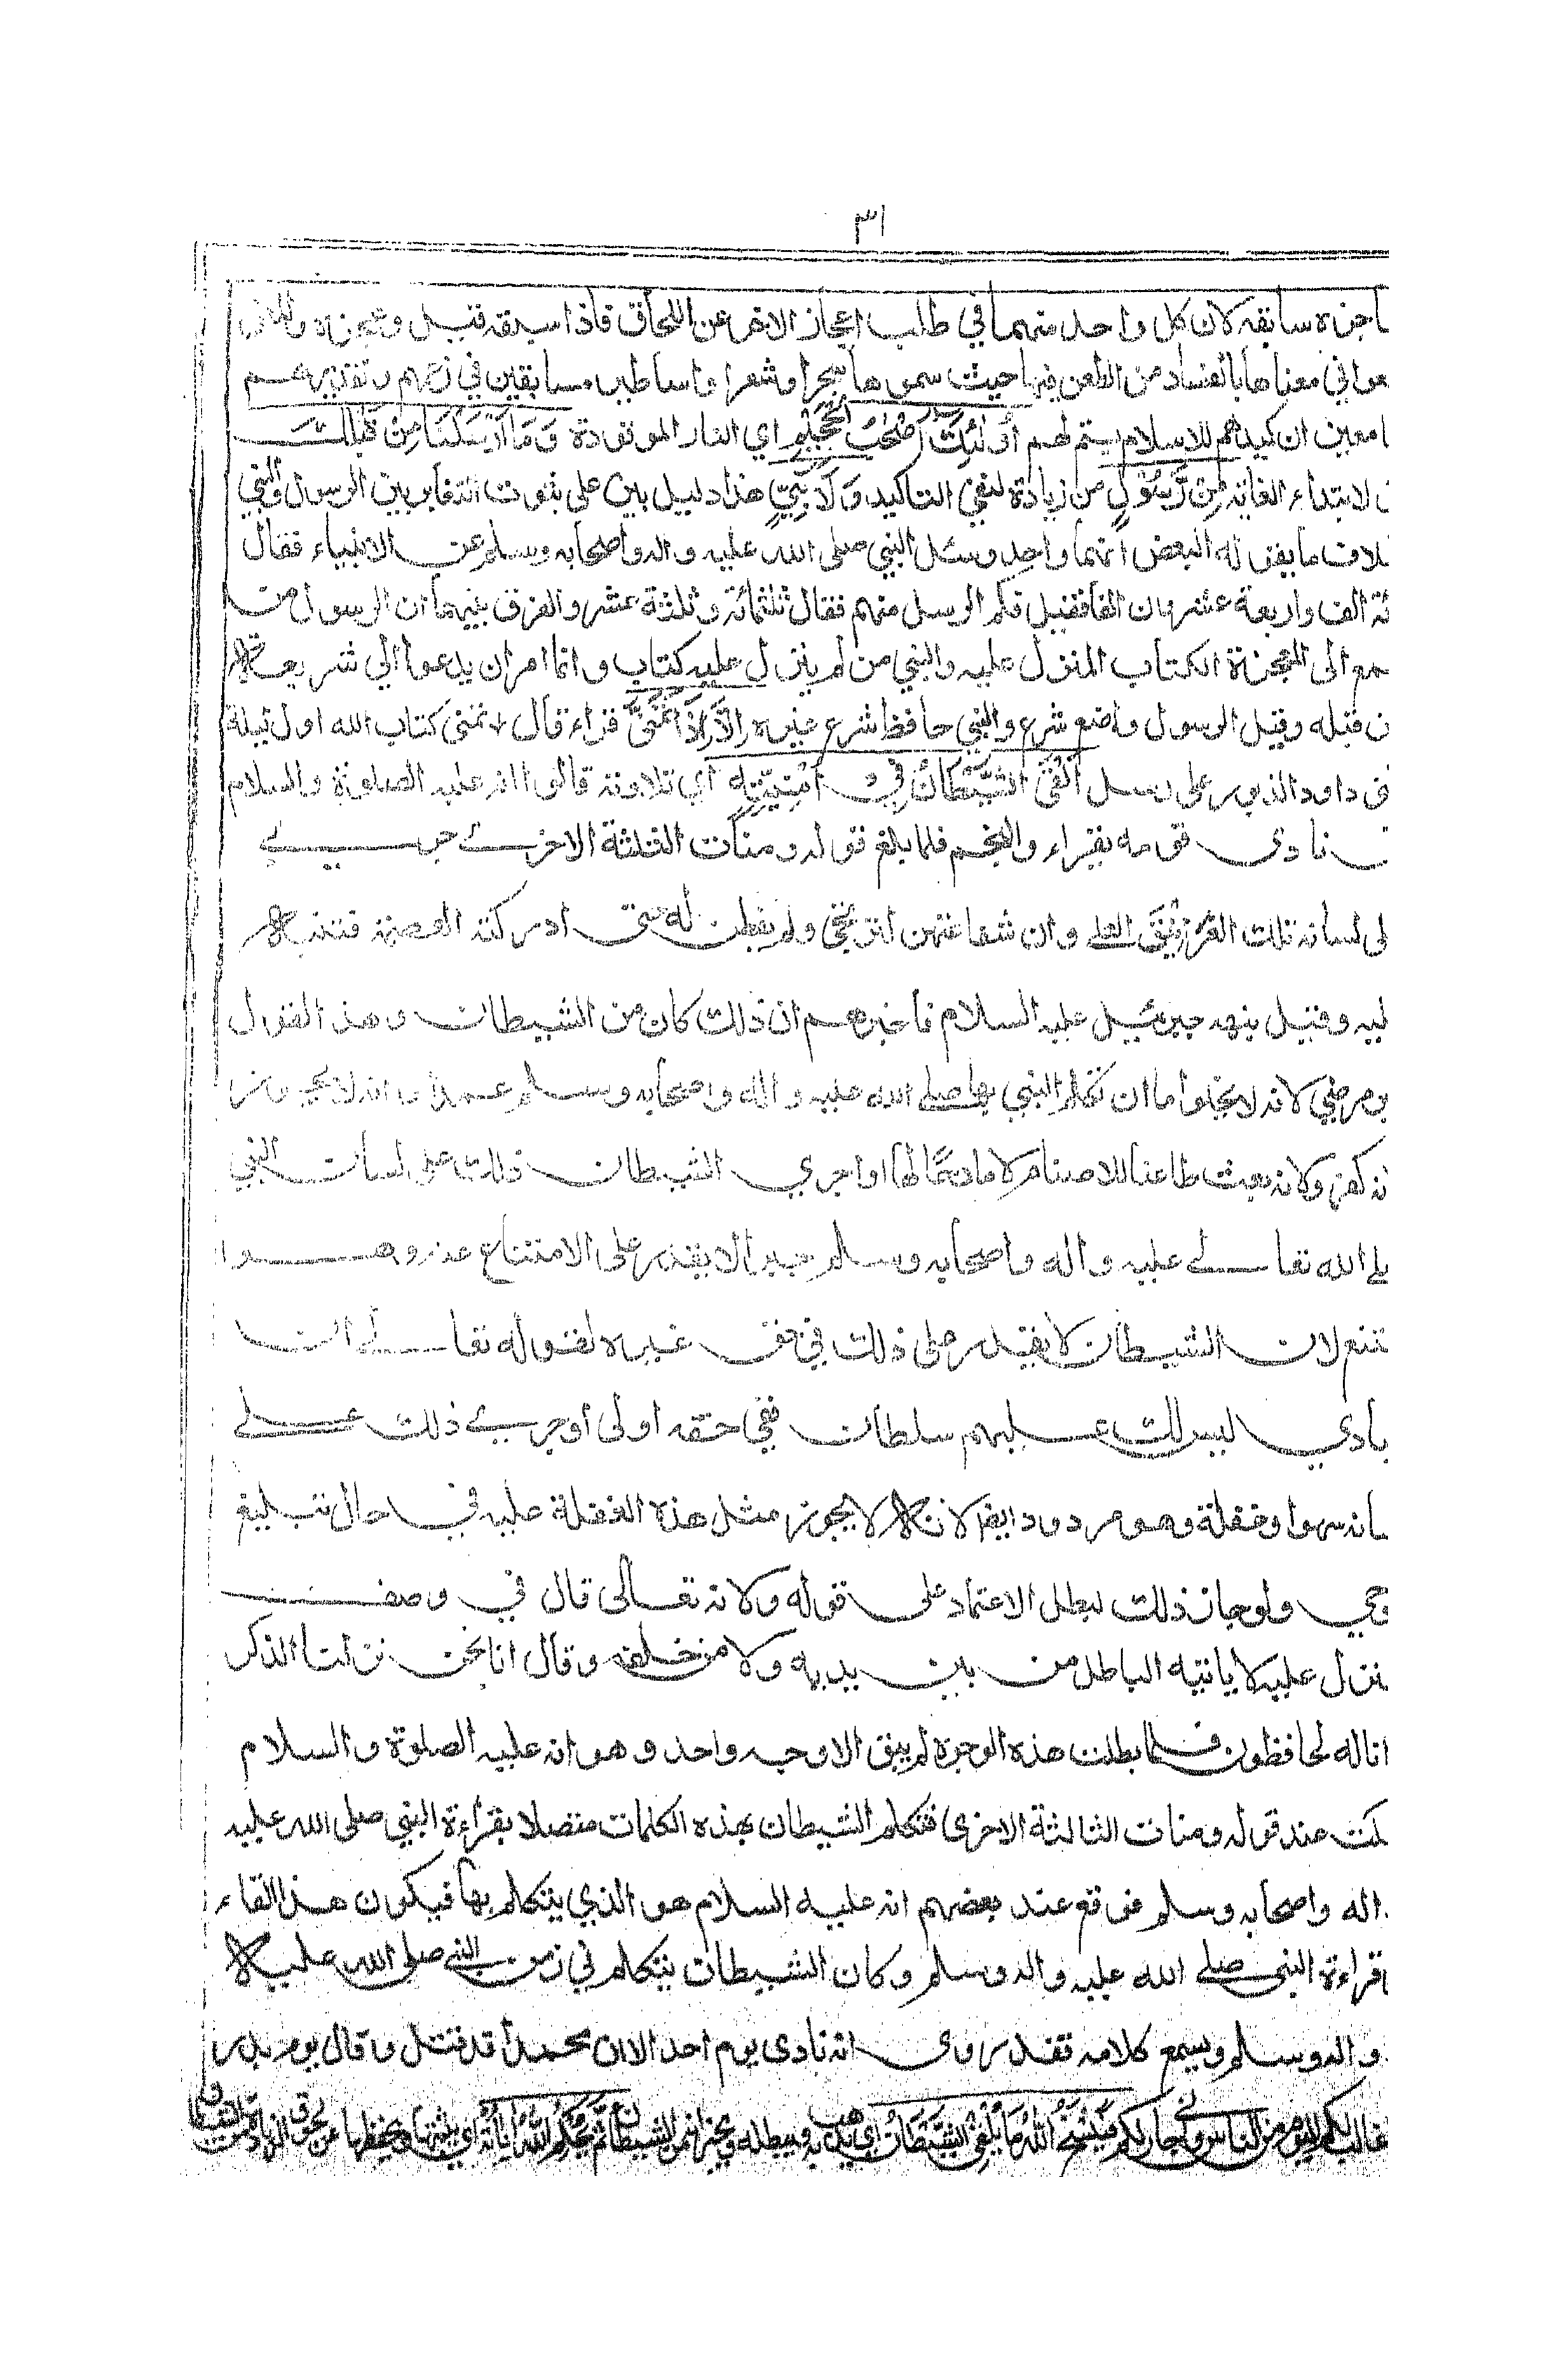 ٣١
ـاجزه سابقه لان كل واحد منهما في طلب اعجاز الاخر عن اللحاق فاذا سبقه قيل وعجزه
ـعوا في معناها بالفساد من الطعن فيها حيث سموها سحرا وشعرا واساطير مسابقين في زعمهم وتقديرهم
ـامعين ان كيدهم للاسلام يتم لهم أُولٰئِكَ أَصْحٰبُ الْجَحِيْمِ اي النار الموقدة وَمَا أَرْسَلْنَا مِنْ قَبْلِكَ
ـن لابتداء الغاية مِنْ رَّسُوْلٍ من زيادة لنفي التاكيد وَلَا نَبِيٍّ هذا دليل بين على ثبوت التغاير بين الرسول والنبي
ـلاف ما يقوله البعض انهما واحد وسئل النبي صلى الله عليه واله واصحابه وسلم عن الانبياء فقال
ـئة الف واربعة عشرون الفا فقيل فكم الرسل منهم فقال ثلثمائة وثلثة عشر والفرق بينهما ان الرسول من
ـمع الى المعجزة الكتاب المنزل عليه والنبي من لم ينزل عليه كتاب وانما امر ان يدعوا الي شريعة
ـن قبله وقيل الرسول واضع شرع والنبي حافظ شرع غيره إِلَّا إِذَا تَمَنّٰى قراء قال تمنى كتاب الله اول ليلة
ـنى داود الذبور على رسل أَلْقَى الشَّيْطَانُ فِيْ أُمْنِيَّتِهٖ اي تلاوته قالوا انه عليه الصلوة والسلام
ـ نادى قومه بقراء والنجم فلما بلغ قوله ومنات الثلثة الاخرى جرى
ـلى لسانه تلك الغرانيق العلى وان شفاعتهن لترتجى ولم يفطن له حتى ادركته العصمة فتنبه
ـليه وقيل ينهه جبرئيل عليه السلام فاخبرهم ان ذلك كان من الشيطان وهذ القول
ـير مرضي لانه لا يخلوا ما ان تكلم النبي بها صلى الله عليه واله واصحابه وسلم عمدا وانه لا يجوز
ـنه كفر ولانه بعث طاعنا للاصنام لا مادحا لها او اجرى الشيطان ذلك على لسان النبي
ـلى الله تعالى عليه واله واصحابه وسلم جبرا لا يقدر على الامتناع عنه وهو
ـتنع لان الشيطان لا يقدر على ذلك في حق غيره لقوله تعالى ان
ـبادي ليس لك عليهم سلطان ففي حقه اولى او جرى ذلك على
ـسانه سهوا وغفلة وهو مردود ايضا لانه لا يجوز مثل هذه الغفلة عليه في حال تبليغ
ـوحي ولو جاز ذلك لبطل الاعتماد على قوله ولانه تعالى قال في وصف
ـنزل عليه لا ياتيه الباطل من بين يديه ولا من خلفه وقال انا نحن نزلنا الذكر
ـانا له لحافظون فلما بطلت هذه الوجوه لم يبق الا وجه واحد وهو انه عليه الصلوة والسلام
ـكت عند قوله ومنات الثالثة الاخرى فتكلم الشيطان بهذه الكلمات متصلا بقراءة النبي صلى الله عليه
ـ اله واصحابه وسلم فوقع عند بعضهم انه عليه السلام هو الذي يتكلم بها فيكون هذا القاء
ـقراءة النبي صلى الله عليه واله وسلم وكان الشيطان يتكلم في زمن النبي صلى الله عليه
واله وسلم ويسمع كلامه فقد روى انه نادى يوم احد الا ان محمدا قد قتل وقال يوم بدر
غالب لكم اليوم من الناس واني جار لكم فَيَنْسَخُ اللّٰهُ مَا يُلْقِي الشَّيْطَانُ اي يذهب به ويبطله ويخبر انه من الشيطان ثُمَّ يُحْكِمُ اللّٰهُ اٰيَاتِهٖ اي يثبتها ويحفظها عن لحوق الزيادة من الشيطان